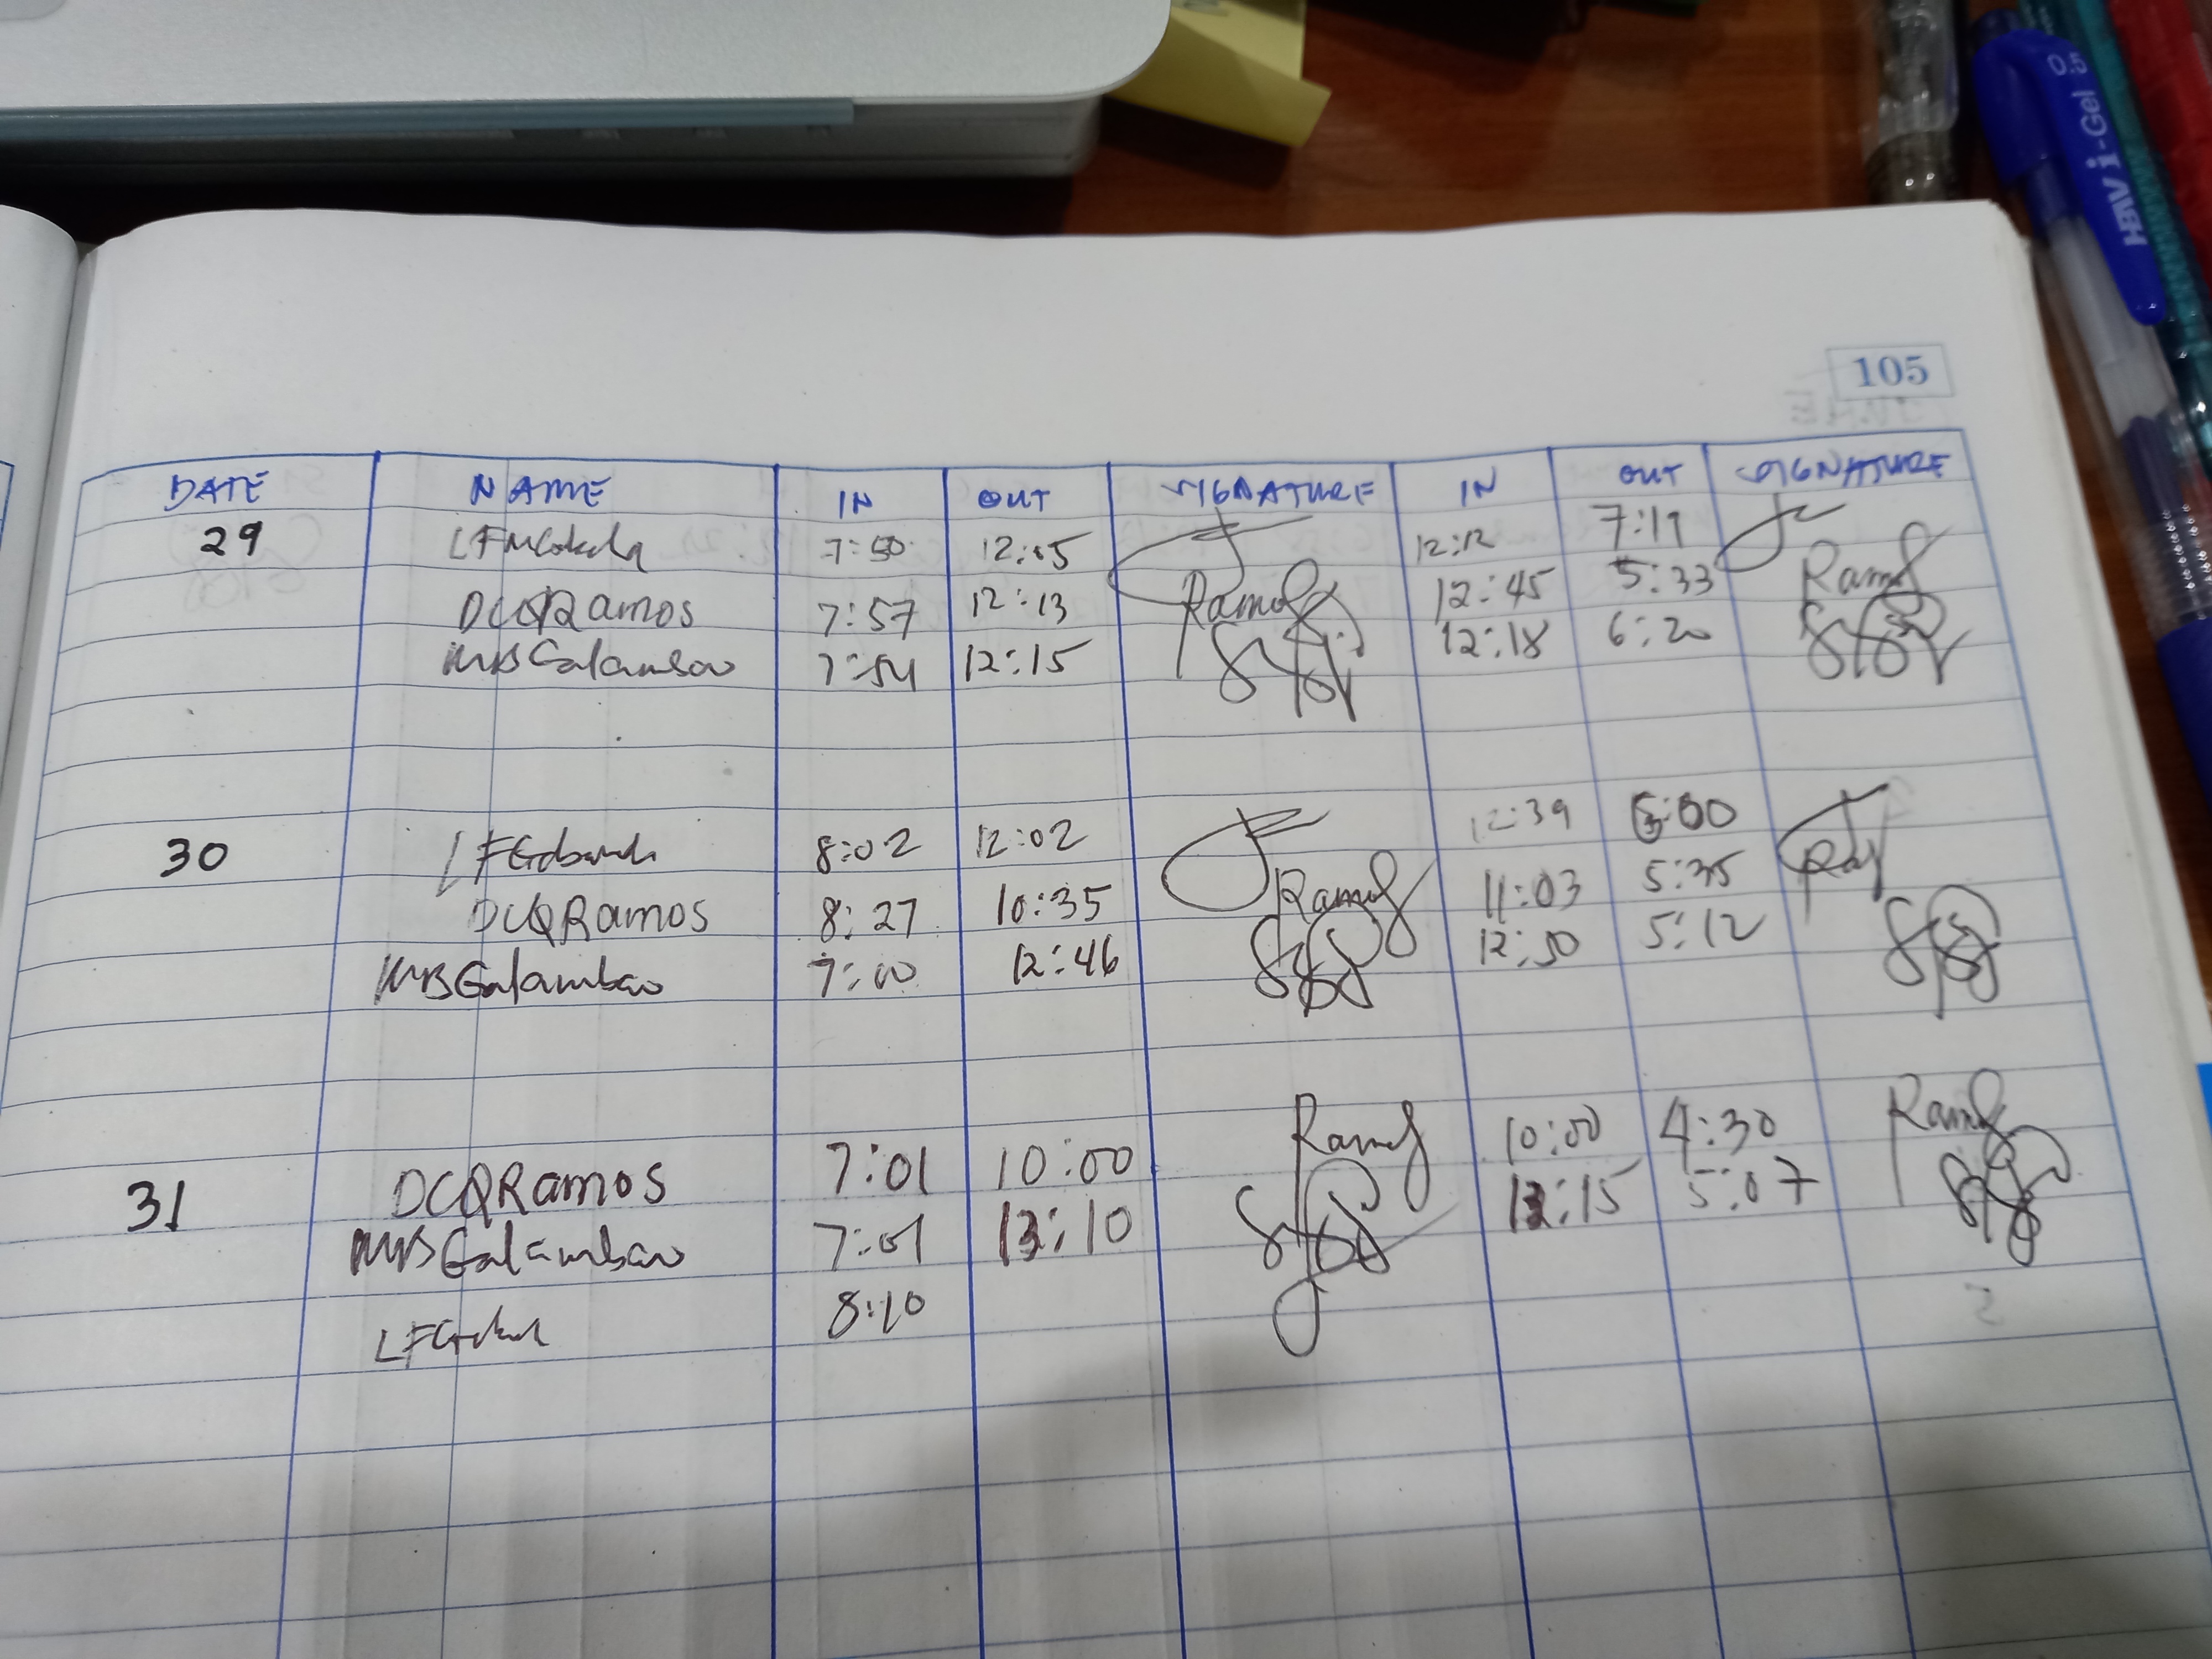 HBW i-Gel 0.5
105
DATE NAME IN OUT SIGNATURE IN OUT SIGNATURE
29 7:50 12:05 12:12 7:19
DCQRamos 7:57 12:13 Ramos 12:45 5:33 Ramos
MBGalambao 7:54 12:15 12:18 6:20
30 8:02 12:02 12:39 5:00
DCQRamos 8:27 10:35 Ramos 11:03 5:35
MBGalambao 7:00 12:46 12:50 5:12
31 DCQRamos 7:01 10:00 Ramos 10:00 4:30 Ramos
MBGalambao 7:01 :10 :15 5:07
8:10